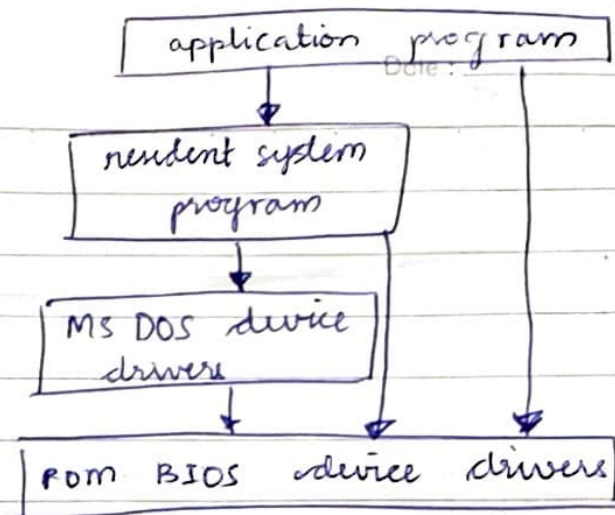 application program
Date :
resident system
program
MS DOS device
drivers
ROM BIOS device drivers